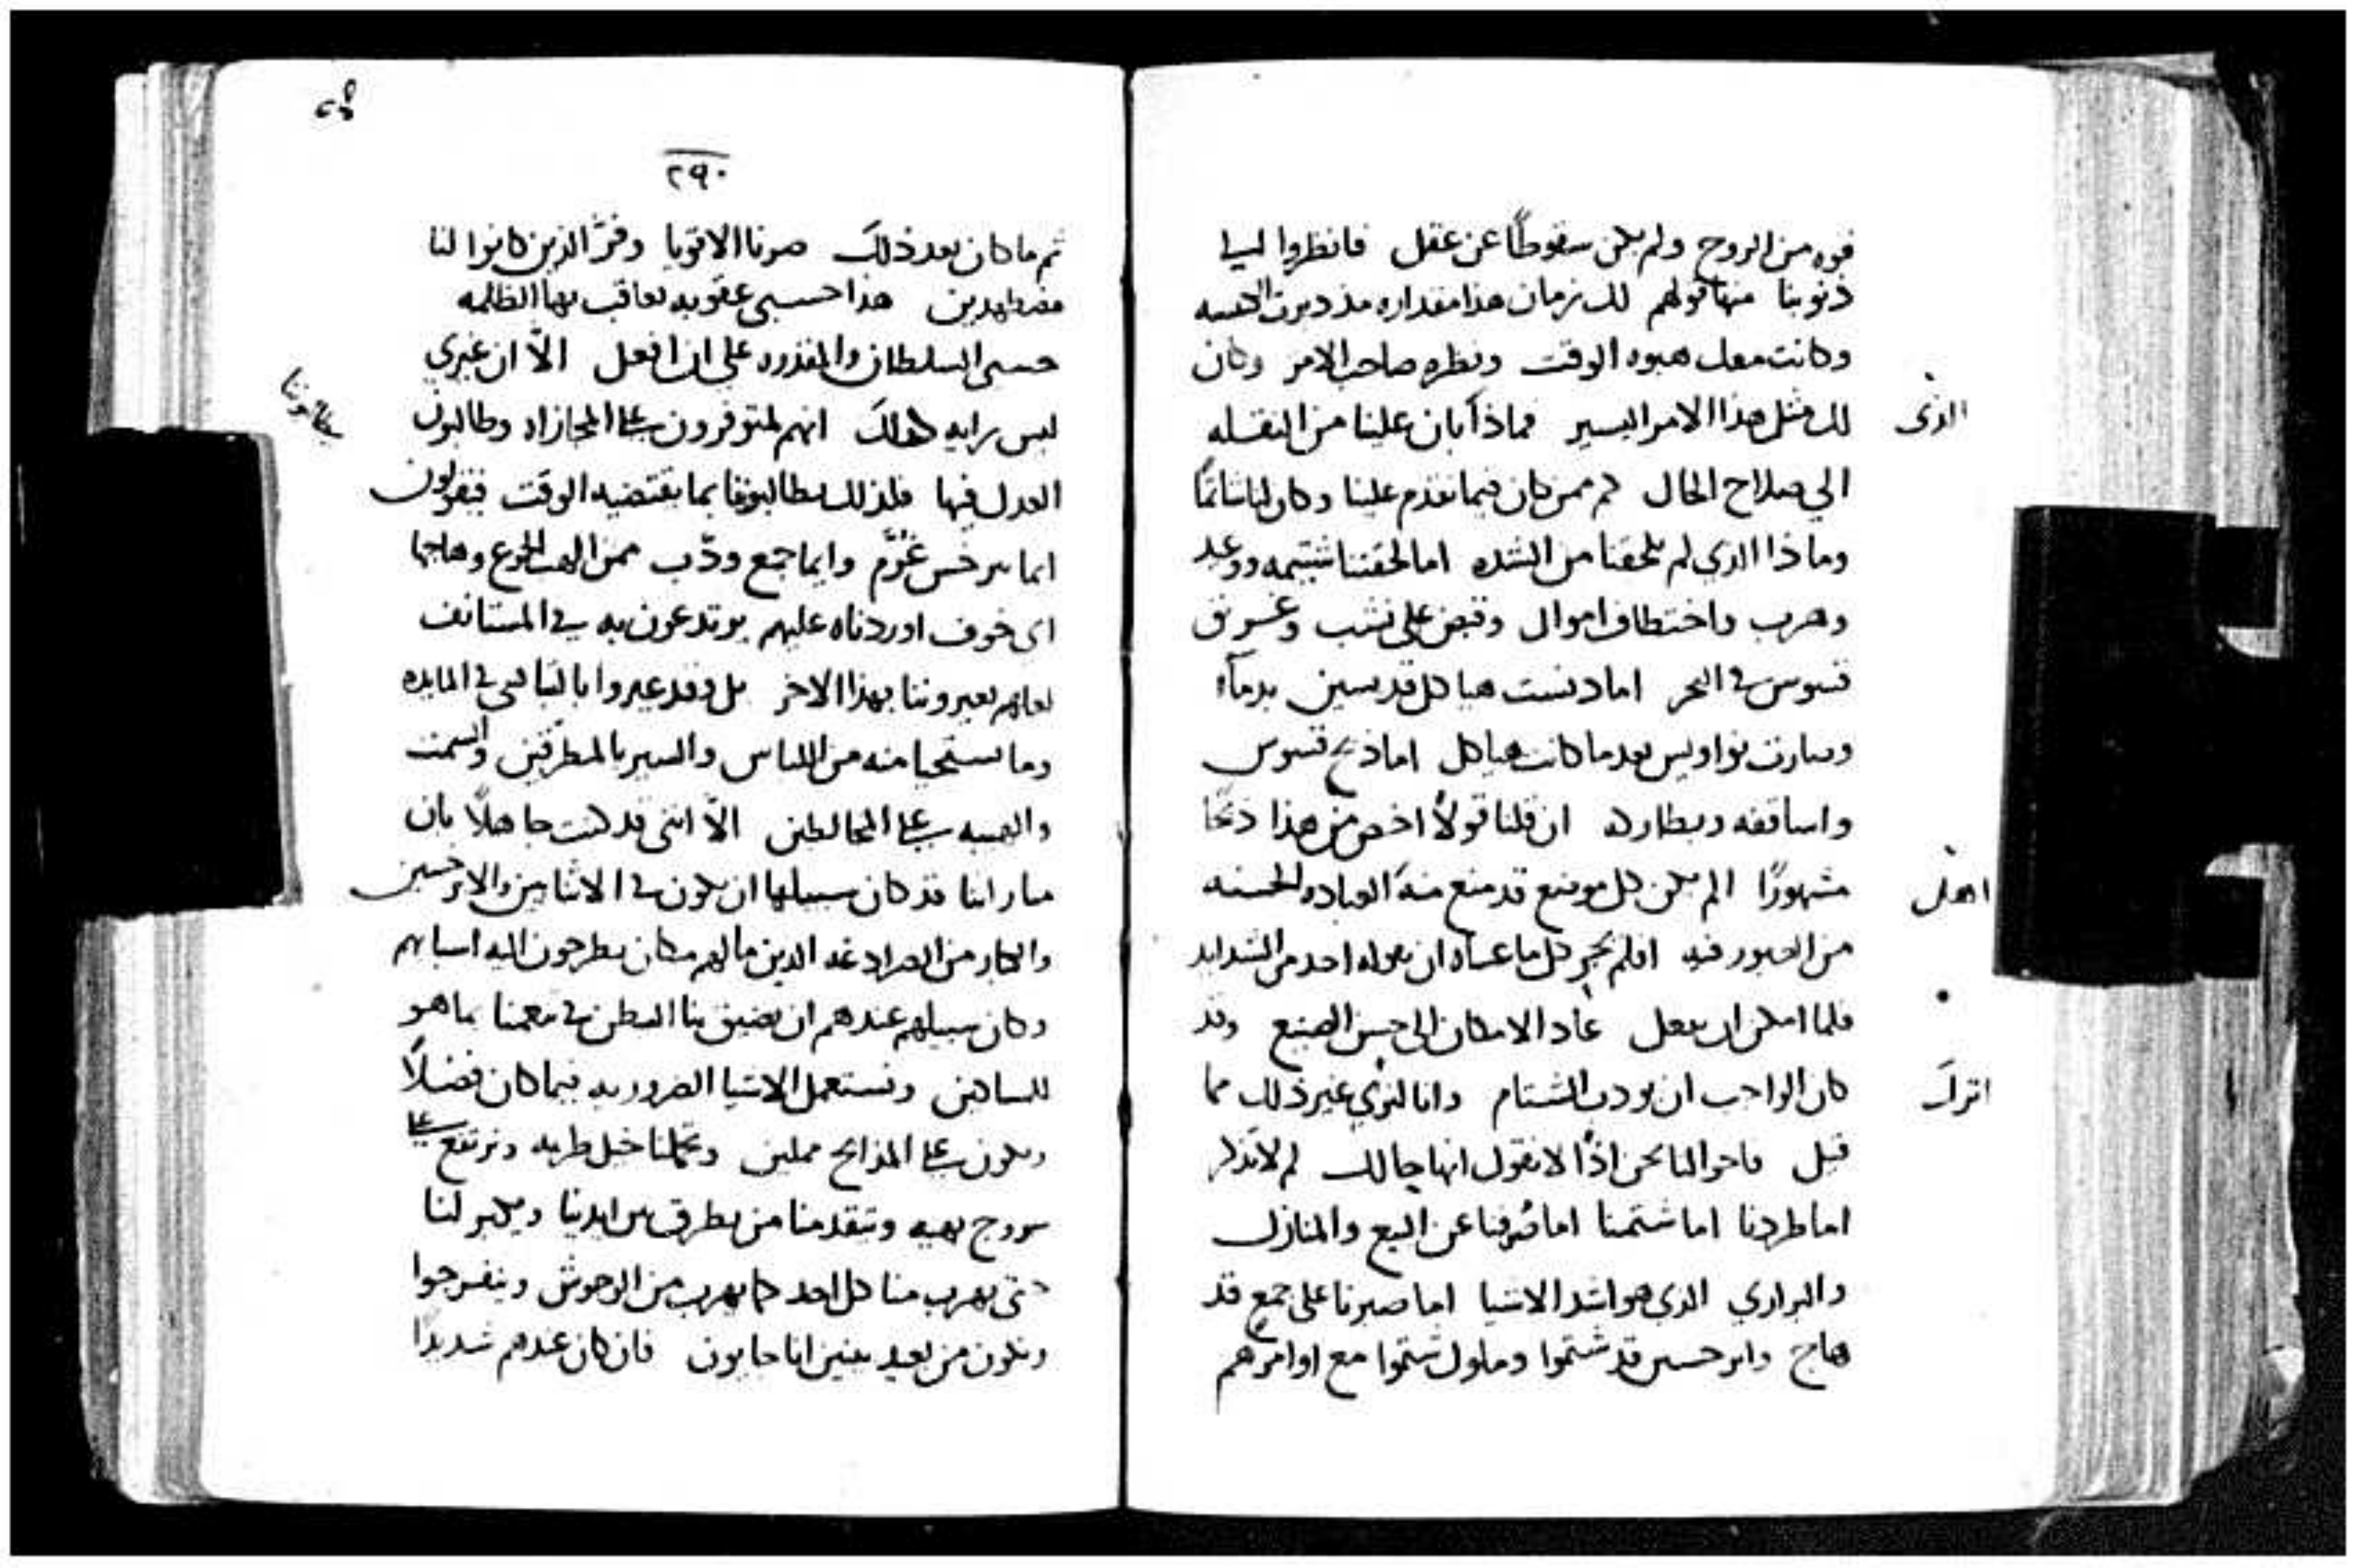 قوه من الروح ولم يكن سقوطًا عن عقل فانظروا
ذنوبنا منها قولهم لك زمان هذا مقداره مذ دبرت
وكانت معك هبوه الوقت ونظره صاحب الامر وكان
الذى
لك مثل هذا الامر اليسير فماذا بان علينا من النقله
الي صلاح الحال كم ممن كان فيما تقدم علينا وكان لنا شاتمًا
وماذا الذي لم يلحقنا من الشده اما لحقتنا شتيمه ووعيد
وهرب واختطاف اموال وقبض على نشب وغريق
قسوس في البحر اما دنست هياكل قديسين بدماء
وصارت نواويس بعدما كانت هياكل اما ذبح قسوس
واساقفه وبطاركه ان قلنا قولًا اخص من هذا ذبحًا
اهل
مشهورًا الم يكن كل موضع قد منع منه العباده الحسنه
من العبور فيه افلم يجر كل ما عساه ان يقوله احد من الشدايد
فلما امكن ان نفعل عاد الامكان الى حسن الصنيع وقد
اترك
كان الواجب ان يودب الشتام وانا غير ذلك مما
قيل فاحوالنا نحن اذًا لا نقول انها حالك لم لا تذكر
اما طردنا اما شتمنا اما صُرفنا عن البيع والمنازل
والبراري الذى هو اشد الاشيا اما صبرنا على جمع قد
هاج وابرخسس قد شتموا وملوك شتموا مع اوامرهم
٢٩٠
ثم ما كان بعد ذلك صرنا الاقويا وفرّ الذين كانوا لنا
مضطهدين هذا حسبى عقوبه نعاقب بها الظلمه
حسبى السلطان والمقدره على ان افعل الّا ان غيري
ليس رايه كذلك انهم لمتوفرون على المجازاه وطالبون
يطالبونا
العدل فيها فلذلك يطالبونا بما يقتضيه الوقت فيقولون
ايما ابرخسس غُرّم وايما جمع ودّب ممن الهب الجموع وهاجها
اى خوف اوردناه عليهم يرتدعون به في المستانف
لعلهم يعيروننا بهذا الاخر بل وقد عيروا بالتبالى في المايده
وما يستحيا منه من اللباس والسير بالمطرقين والسمت
والهيبه على المخالطين الّا اننى قد كنت جاهلًا بان
مباراتنا قد كان سبيلها ان تكون في الاثنابين والابرخسسين
والكبار من الصرادغه الذين ما لهم مكان يطرحون اليه اسبابهم
وكان سبيلهم عندهم ان يضيق بنا البطن في تنعمنا بما هو
للمساكين ونستعمل الاشيا الضروريه فيما كان فضلًا
ونكون على المذابح مملين وتحملنا خيل طريه ونرتفع على
سروج بهيه ويتقدمنا من يطرق بين ايدينا ويكبر لنا
حتى يهرب منا كل احد كما يهرب من الوحوش وينفرجوا
ونكون من بعيد بينين انا جايون فان كان عندهم شديدًا